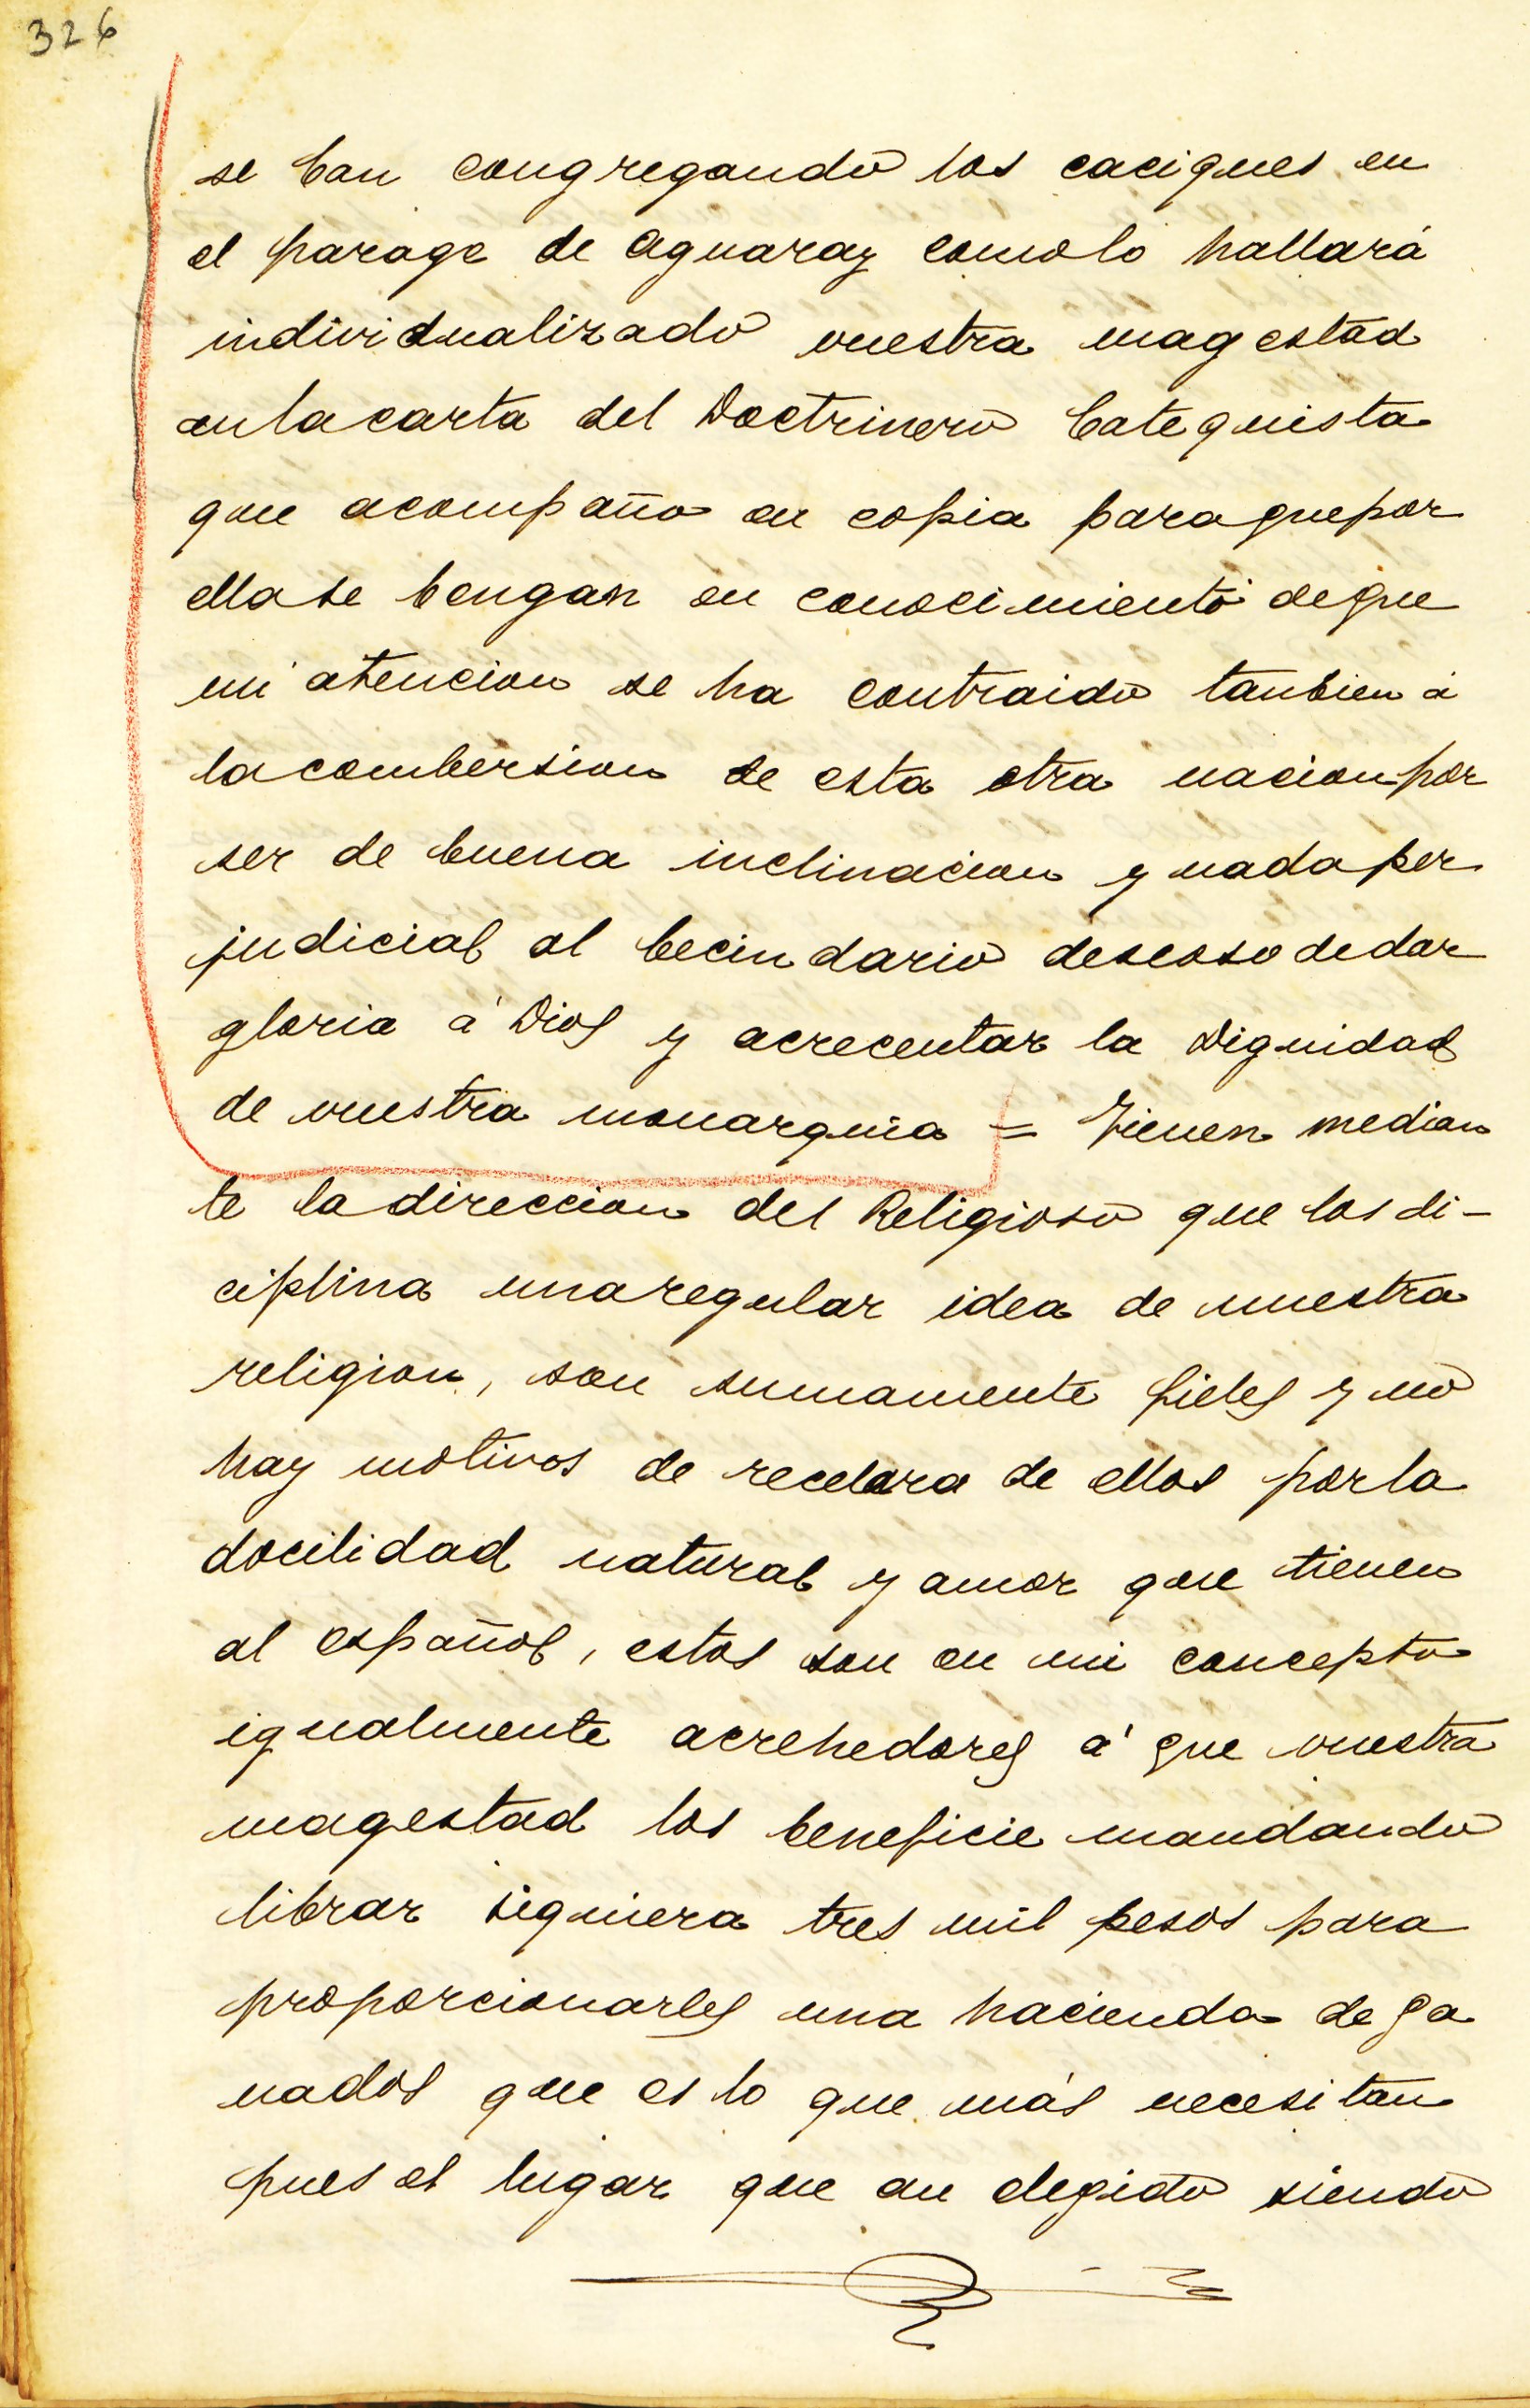 326
se ban congregando los caciques en
el parage de Aguaray como lo hallará
individualizado vuestra magestad
en la carta del Doctrinero Catequista
que acompaño en copia para que por
ella se bengan en conocimiento de que
mi atencion se ha contraido tanbien á
la combersion de esta otra nacion por
ser de buena inclinacion y nada per
judicial al becindario deseoso de dar
gloria á Dios y acrecentar la Dignidad
de vuestra monarquia = Tienen median
te la direccion del Religioso que los di-
ciplina una regular idea de nuestra
religion, son sumamente fieles y no
hay motivos de recelara de ellos por la
docilidad natural y amor que tienen
al español, estos son en mi concepto
igualmente acrehedores á que vuestra
magestad los beneficie mandando
librar siquiera tres mil pesos para
proporcionarles una hacienda de ga
nados que es lo que más necesitan
pues el lugar que an elegido siendo